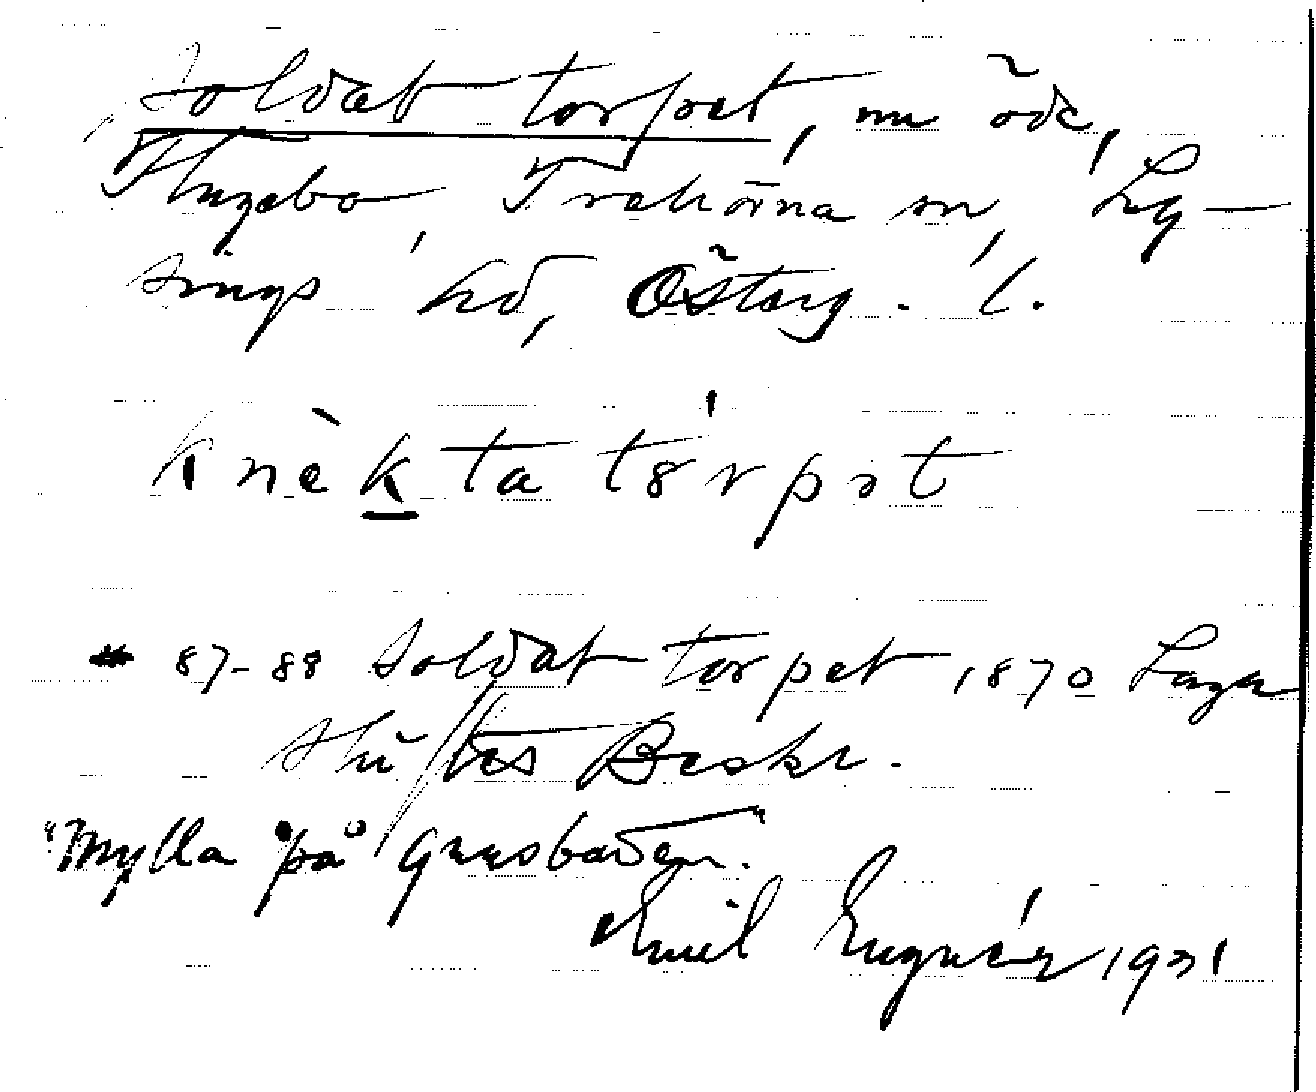 Soldattorpet, nu öde,
Flugebo, Trehörna sn, Ly-
sings hd, Österg. l.
knèkta tór pet
87-88 Soldattorpet 1870 Laga
skiftes Beskr.
"Mylla på"
Emil Engnér 1931